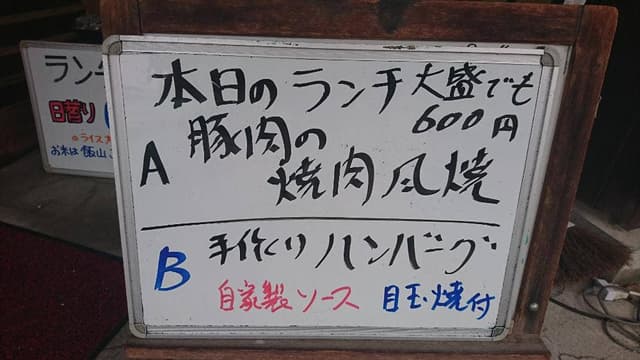 本日のランチ 大盛でも
600円
A 豚肉の
焼肉風焼
B 手作りハンバーグ
自家製ソース 目玉焼付
ラン
日替り
※ライス大
お米は飯山こ